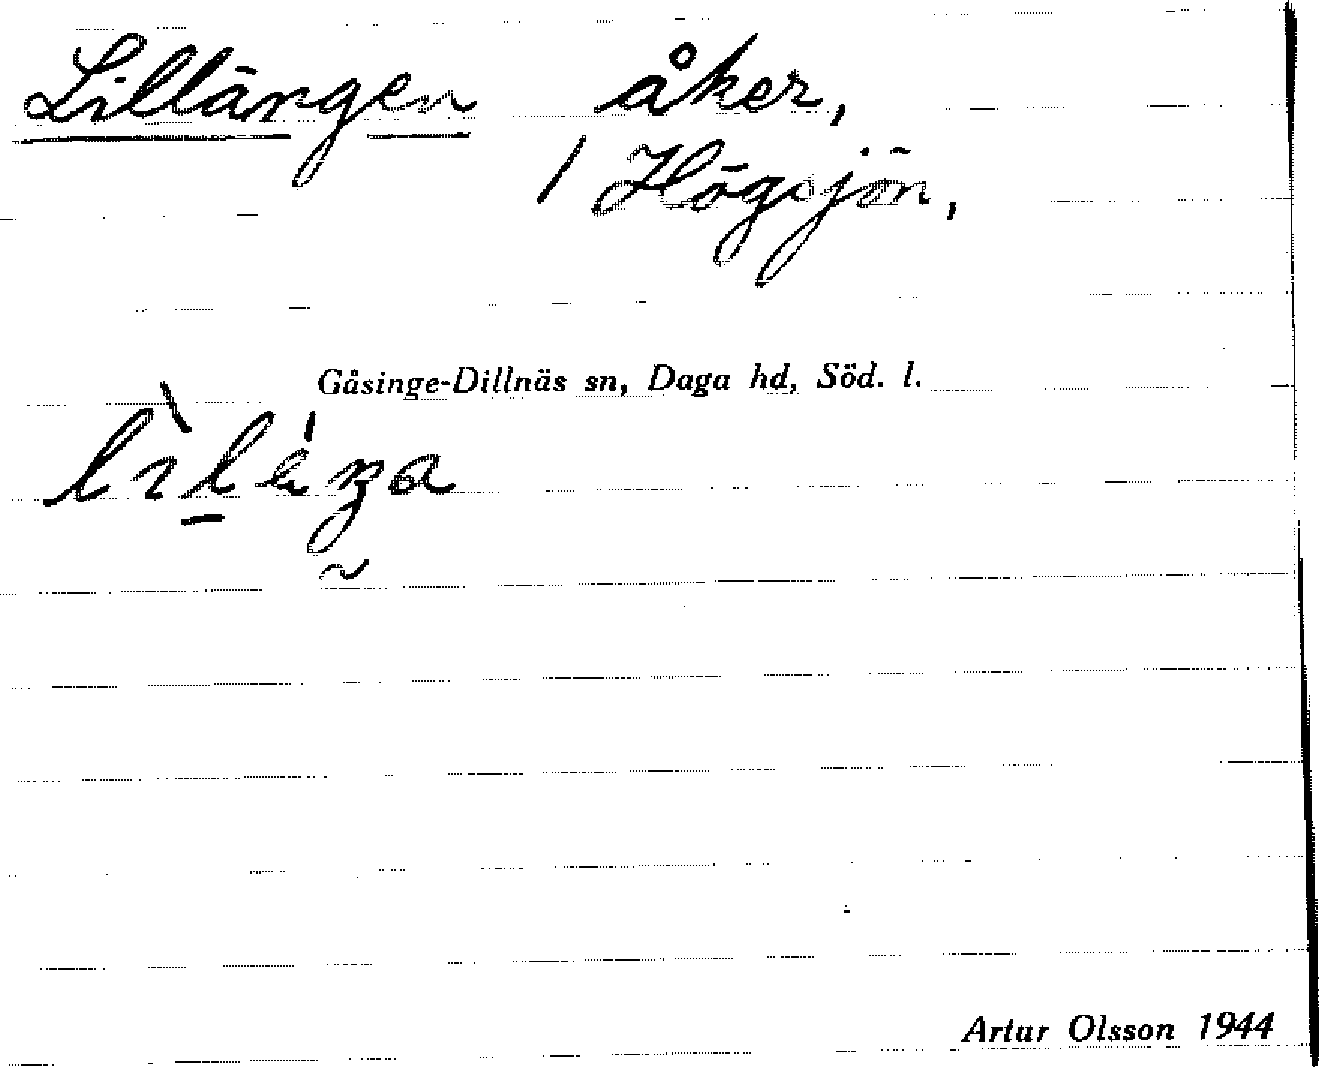 Lillängen åker,
/ Högsjön,
Gåsinge-Dillnäs sn, Daga hd, Söd. l.
Artur Olsson 1944